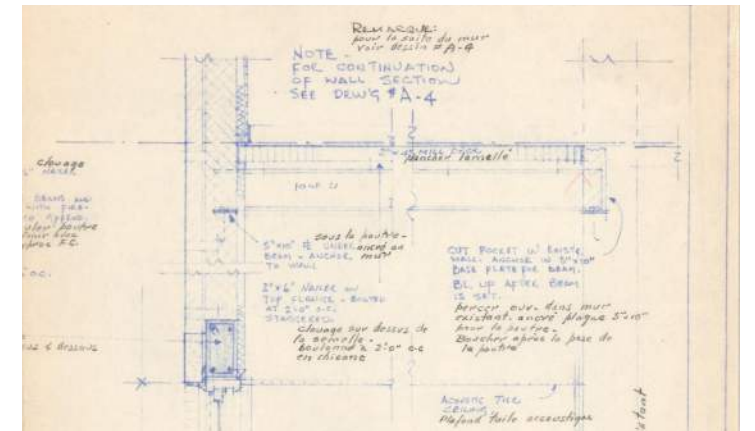 REMARQUE:
pour la suite du mur
voir dessin # A-4
NOTE -
FOR CONTINUATION
OF WALL SECTION
SEE DRW'G # A-4
clouage
NAILER
MILL FLOOR
plancher lamellé
BEAMS AND
WITH FIRE-
poutre
O.C.
& dessous
sous la poutre -
ancré au
mur
5"x10" ⅊ UNDER
BEAM - ANCHOR
TO WALL
2"x6" NAILER ON
TOP FLANGE - BOLTED
AT 2'-0" o.c.
STAGGERED
clouage sur dessus de
la semelle -
boulonné à 2'-0" o.c
en chicane
CUT POCKET IN EXIST'G
WALL. ANCHOR IN 5"x10"
BASE PLATE FOR BEAM.
BK. UP AFTER BEAM
IS SET.
percer ouv. dans mur
existant. ancré plaque 5"x10"
pour la poutre.
Boucher après la pose de
la poutre
ACOUSTIC TILE
CEILING
Plafond tuile accoustique